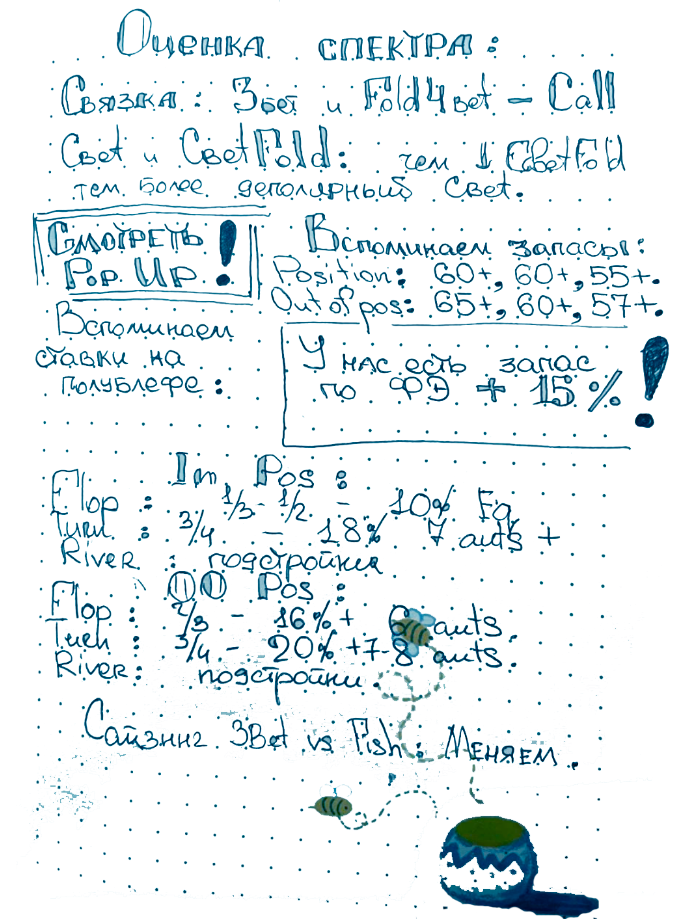 Оценка спектра:
Связка: 3бет и Fold4bet – Call
Cbet и CbetFold: чем ↓ CbetFold
тем более деполярный Cbet.
Смотреть
Pop Up!
Вспоминаем запасы:
Position: 60+, 60+, 55+.
Out of pos: 65+, 60+, 57+.
Вспоминаем
ставки на
полублефе:
У нас есть запас
по ФЭ + 15%!
In Pos:
Flop: 1/3 - 1/2 - 10% Eq
Turn: 3/4 - 18% 7 auts +
River: подстройка
OO Pos:
Flop: 2/3 - 16% + 6 auts.
Turn: 3/4 - 20% + 7-8 auts.
River: подстройки.
Сайзинг 3Bet vs Fish: Меняем.